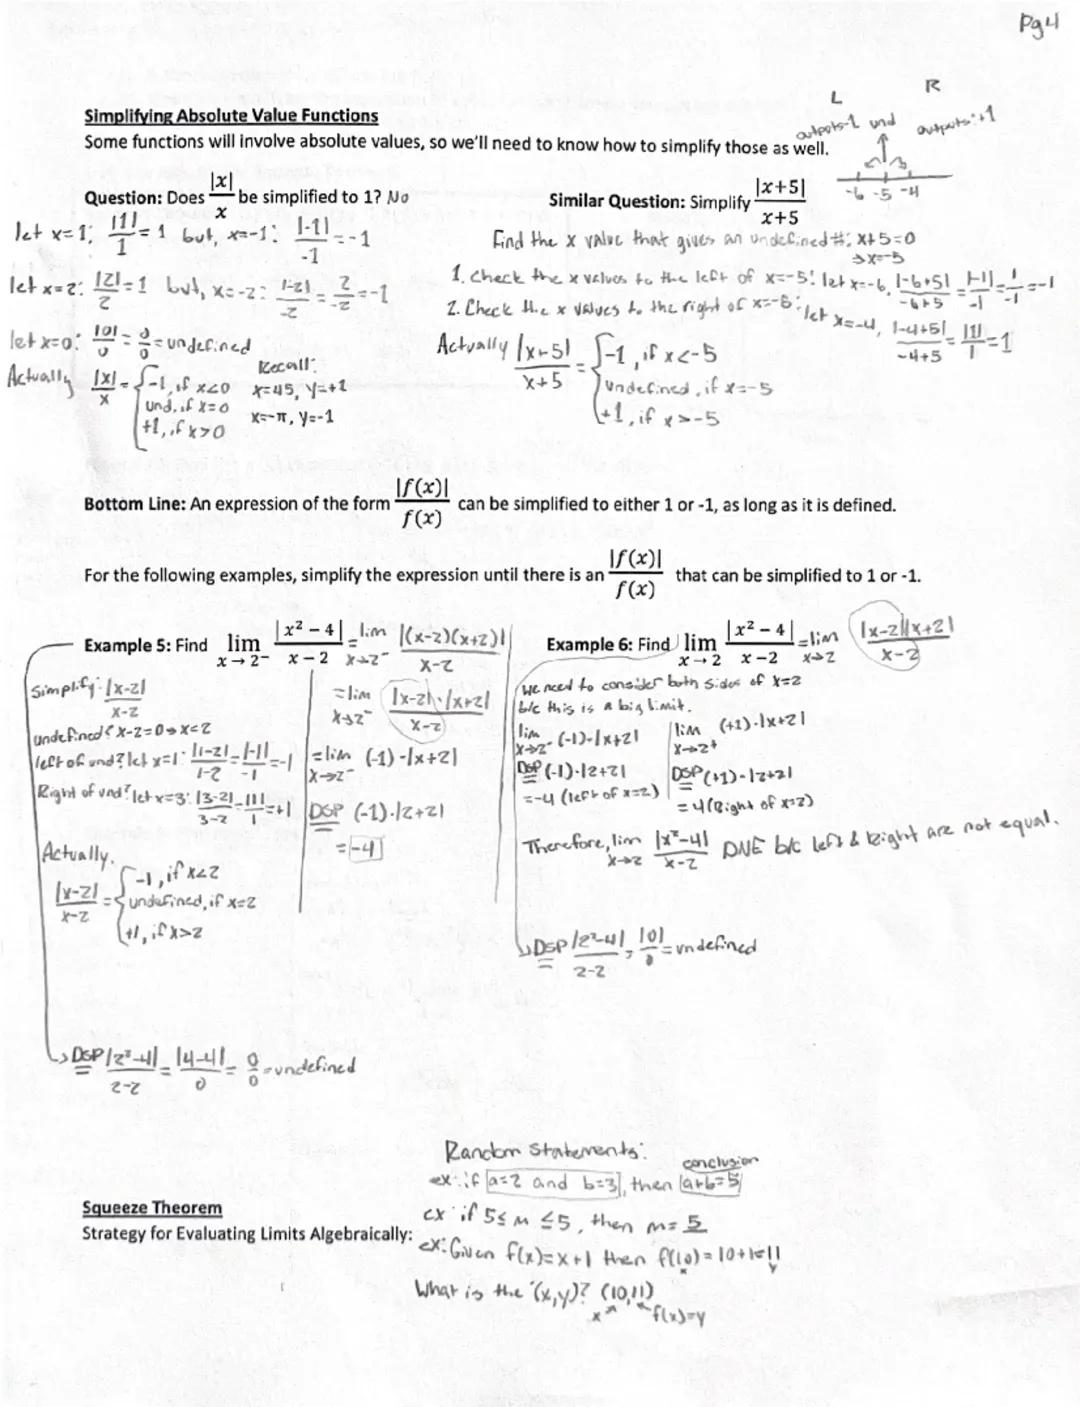 Pg4
L R
outputs-1 und outputs:+1
-6 -5 -4
Simplifying Absolute Value Functions
Some functions will involve absolute values, so we'll need to know how to simplify those as well.
Question: Does |x|/x be simplified to 1? No
let x=1: |1|/1 = 1 but, x=-1: |-1|/-1 = -1
let x=2: |2|/2 = 1 but, x=-2: |-2|/-2 = 2/-2 = -1
let x=0: |0|/0 = 0/0 = undefined
Actually |x|/x = { -1, if x<0
und. if x=0
+1, if x>0
Recall:
x=45, y=+1
x=-π, y=-1
Similar Question: Simplify |x+5|/x+5
Find the x value that gives an undefined #: x+5=0
→x=-5
1. Check the x values to the left of x=-5: let x=-6, |-6+5|/-6+5 = |-1|/-1 = 1/-1 = -1
2. Check the x values to the right of x=-5: let x=-4, |-4+5|/-4+5 = |1|/1 = 1
Actually |x+5|/x+5 = { -1, if x<-5
undefined, if x=-5
+1, if x>-5
Bottom Line: An expression of the form |f(x)|/f(x) can be simplified to either 1 or -1, as long as it is defined.
For the following examples, simplify the expression until there is an |f(x)|/f(x) that can be simplified to 1 or -1.
Example 5: Find lim x→2- |x²-4|/x-2 = lim x→2- |(x-2)(x+2)|/x-2
Simplify: |x-2|/x-2
undefined? x-2=0→x=2
left of und? let x=1: |1-2|/1-2 = |-1|/-1 = -1
Right of und? let x=3: |3-2|/3-2 = |1|/1 = +1
Actually.
|x-2|/x-2 = { -1, if x<2
undefined, if x=2
+1, if x>2
=lim x→2- |x-2|·|x+2|/x-2
=lim x→2- (-1)·|x+2|
DSP (-1)·|2+2|
=-4
↳DSP |2²-4|/2-2 = |4-4|/0 = 0/0 = undefined
Example 6: Find lim x→2 |x²-4|/x-2 = lim x→2 |x-2||x+2|/x-2
we need to consider both sides of x=2
b/c this is a big limit.
lim x→2- (-1)·|x+2|
DSP (-1)·|2+2|
=-4 (left of x=2)
lim x→2+ (+1)·|x+2|
DSP (+1)·|2+2|
=4 (Right of x=2)
Therefore, lim x→2 |x²-4|/x-2 DNE b/c left & Right are not equal.
↳DSP |2²-4|/2-2 = |0|/0 = undefined
Random Statements:
conclusion
ex: if a=2 and b=3, then a+b=5
Squeeze Theorem
ex: if 5≤ m ≤5, then m= 5
Strategy for Evaluating Limits Algebraically:
ex: Given f(x)=x+1 then f(10)=10+1=11
x y
What is the (x,y)? (10,11)
x f(x)=y